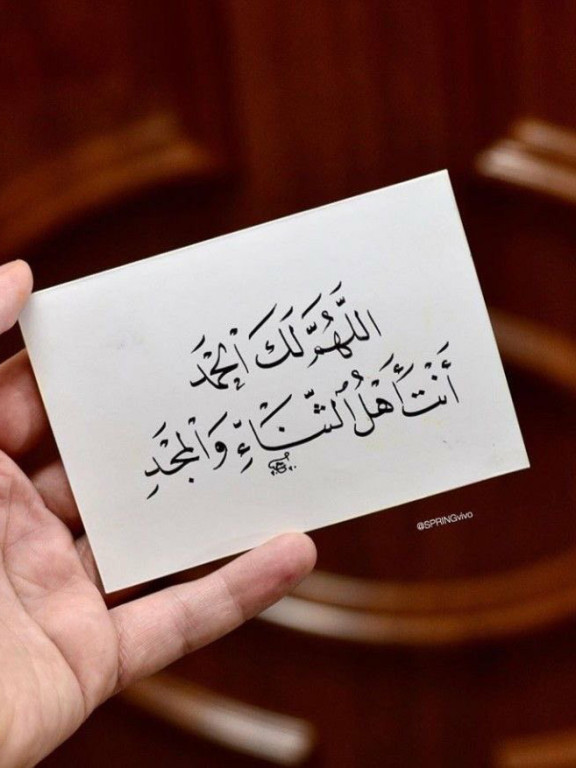 اللَّهُمَّ لَكَ الْحَمْدَ
أَنْتَ أَهْلُ الثَّنَاءِ وَالْمَجْدِ
@SPRINGvivo